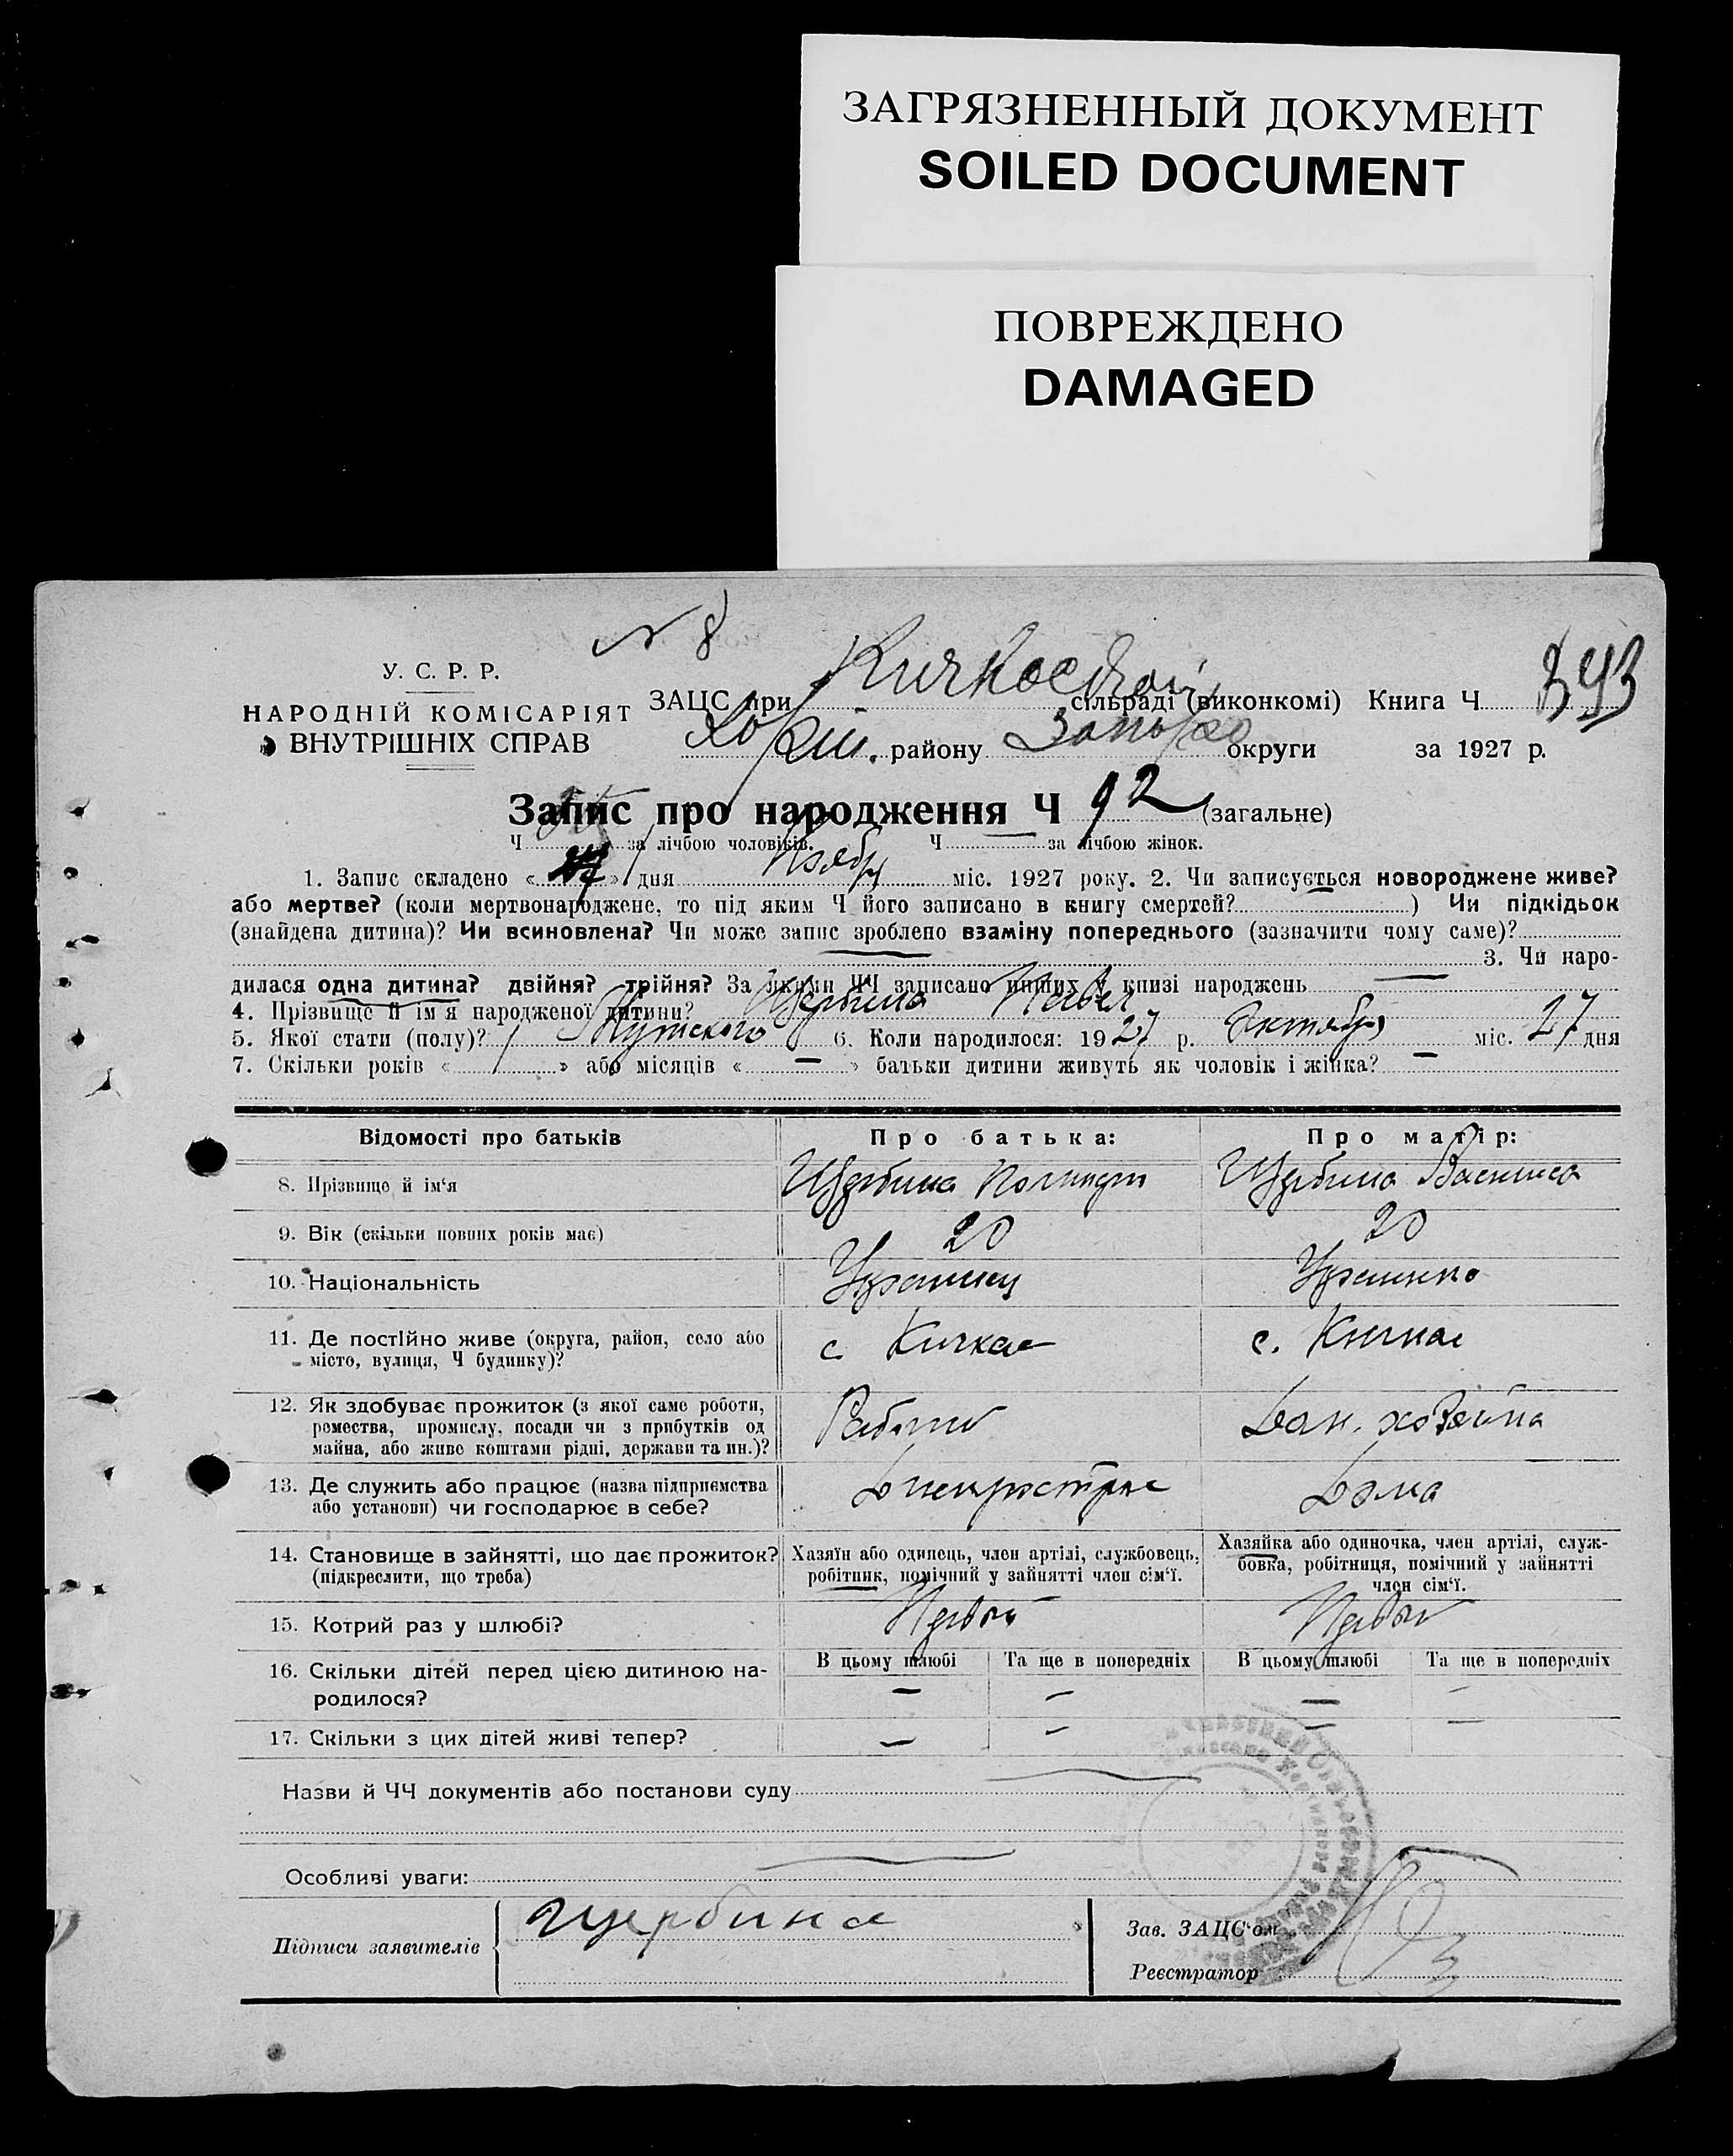 ЗАГРЯЗНЕННЫЙ ДОКУМЕНТ
SOILED DOCUMENT
ПОВРЕЖДЕНО
DAMAGED
N 8
У. С. Р. Р.
НАРОДНІЙ КОМІСАРІЯТ
ВНУТРІШНІХ СПРАВ
ЗАЦС при Кичкасской сільраді (виконкомі) Книга Ч
району округи за 1927 р.
Запис про народження Ч 92 (загальне)
Ч за лічбою чоловіків. Ч за лічбою жінок.
1. Запис складено « » дня Ноября міс. 1927 року. 2. Чи записується новороджене живе?
або мертве? (коли мертвонароджене, то під яким Ч його записано в книгу смертей? ) Чи підкідьок
(знайдена дитина)? Чи всиновлена? Чи може запис зроблено взаміну попереднього (зазначити чому саме)?
3. Чи наро-
дилася одна дитина? двійня? трійня? За якими ЧЧ записано инших у книзі народжень —
4. Прізвище й ім'я народженої дитини? Щербина Павел
5. Якої стати (полу)? Мужского 6. Коли народилося: 1927 р. Октября міс. 27 дня
7. Скільки років « » або місяців « — » батьки дитини живуть як чоловік і жінка? —
Відомості про батьків Про батька: Про матір:
8. Прізвище й ім‘я Щербина Щербина Василиса
9. Вік (скільки повних років має) 20 20
10. Національність Украинец Украинка
11. Де постійно живе (округа, район, село або с Кичкас с. Кичкас
місто, вулиця, Ч будинку)?
12. Як здобуває прожиток (з якої саме роботи,
ремества, промислу, посади чи з прибутків од Рабочий Дом. хозяйка
майна, або живе коштами рідні, держави та ин.)?
13. Де служить або працює (назва підприемства Днепрострое Дома
або установи) чи господарює в себе?
14. Становище в зайнятті, що дає прожиток?
(підкреслити, що треба)
Хазяїн або одинець, член артілі, службовець,
робітник, помічний у зайнятті член сім‘ї.
Хазяйка або одиночка, член артілі, служ-
бовка, робітниця, помічний у зайнятті
член сім‘ї.
15. Котрий раз у шлюбі? Первый Первый
В цьому шлюбі Та ще в попередніх В цьому шлюбі Та ще в попередніх
16. Скільки дітей перед цією дитиною на- — — — —
родилося?
17. Скільки з цих дітей живі тепер? — — — —
Назви й ЧЧ документів або постанови суду
Особливі уваги:
Підписи заявителів Щербина
Зав. ЗАЦС‘ом
Реєстратор